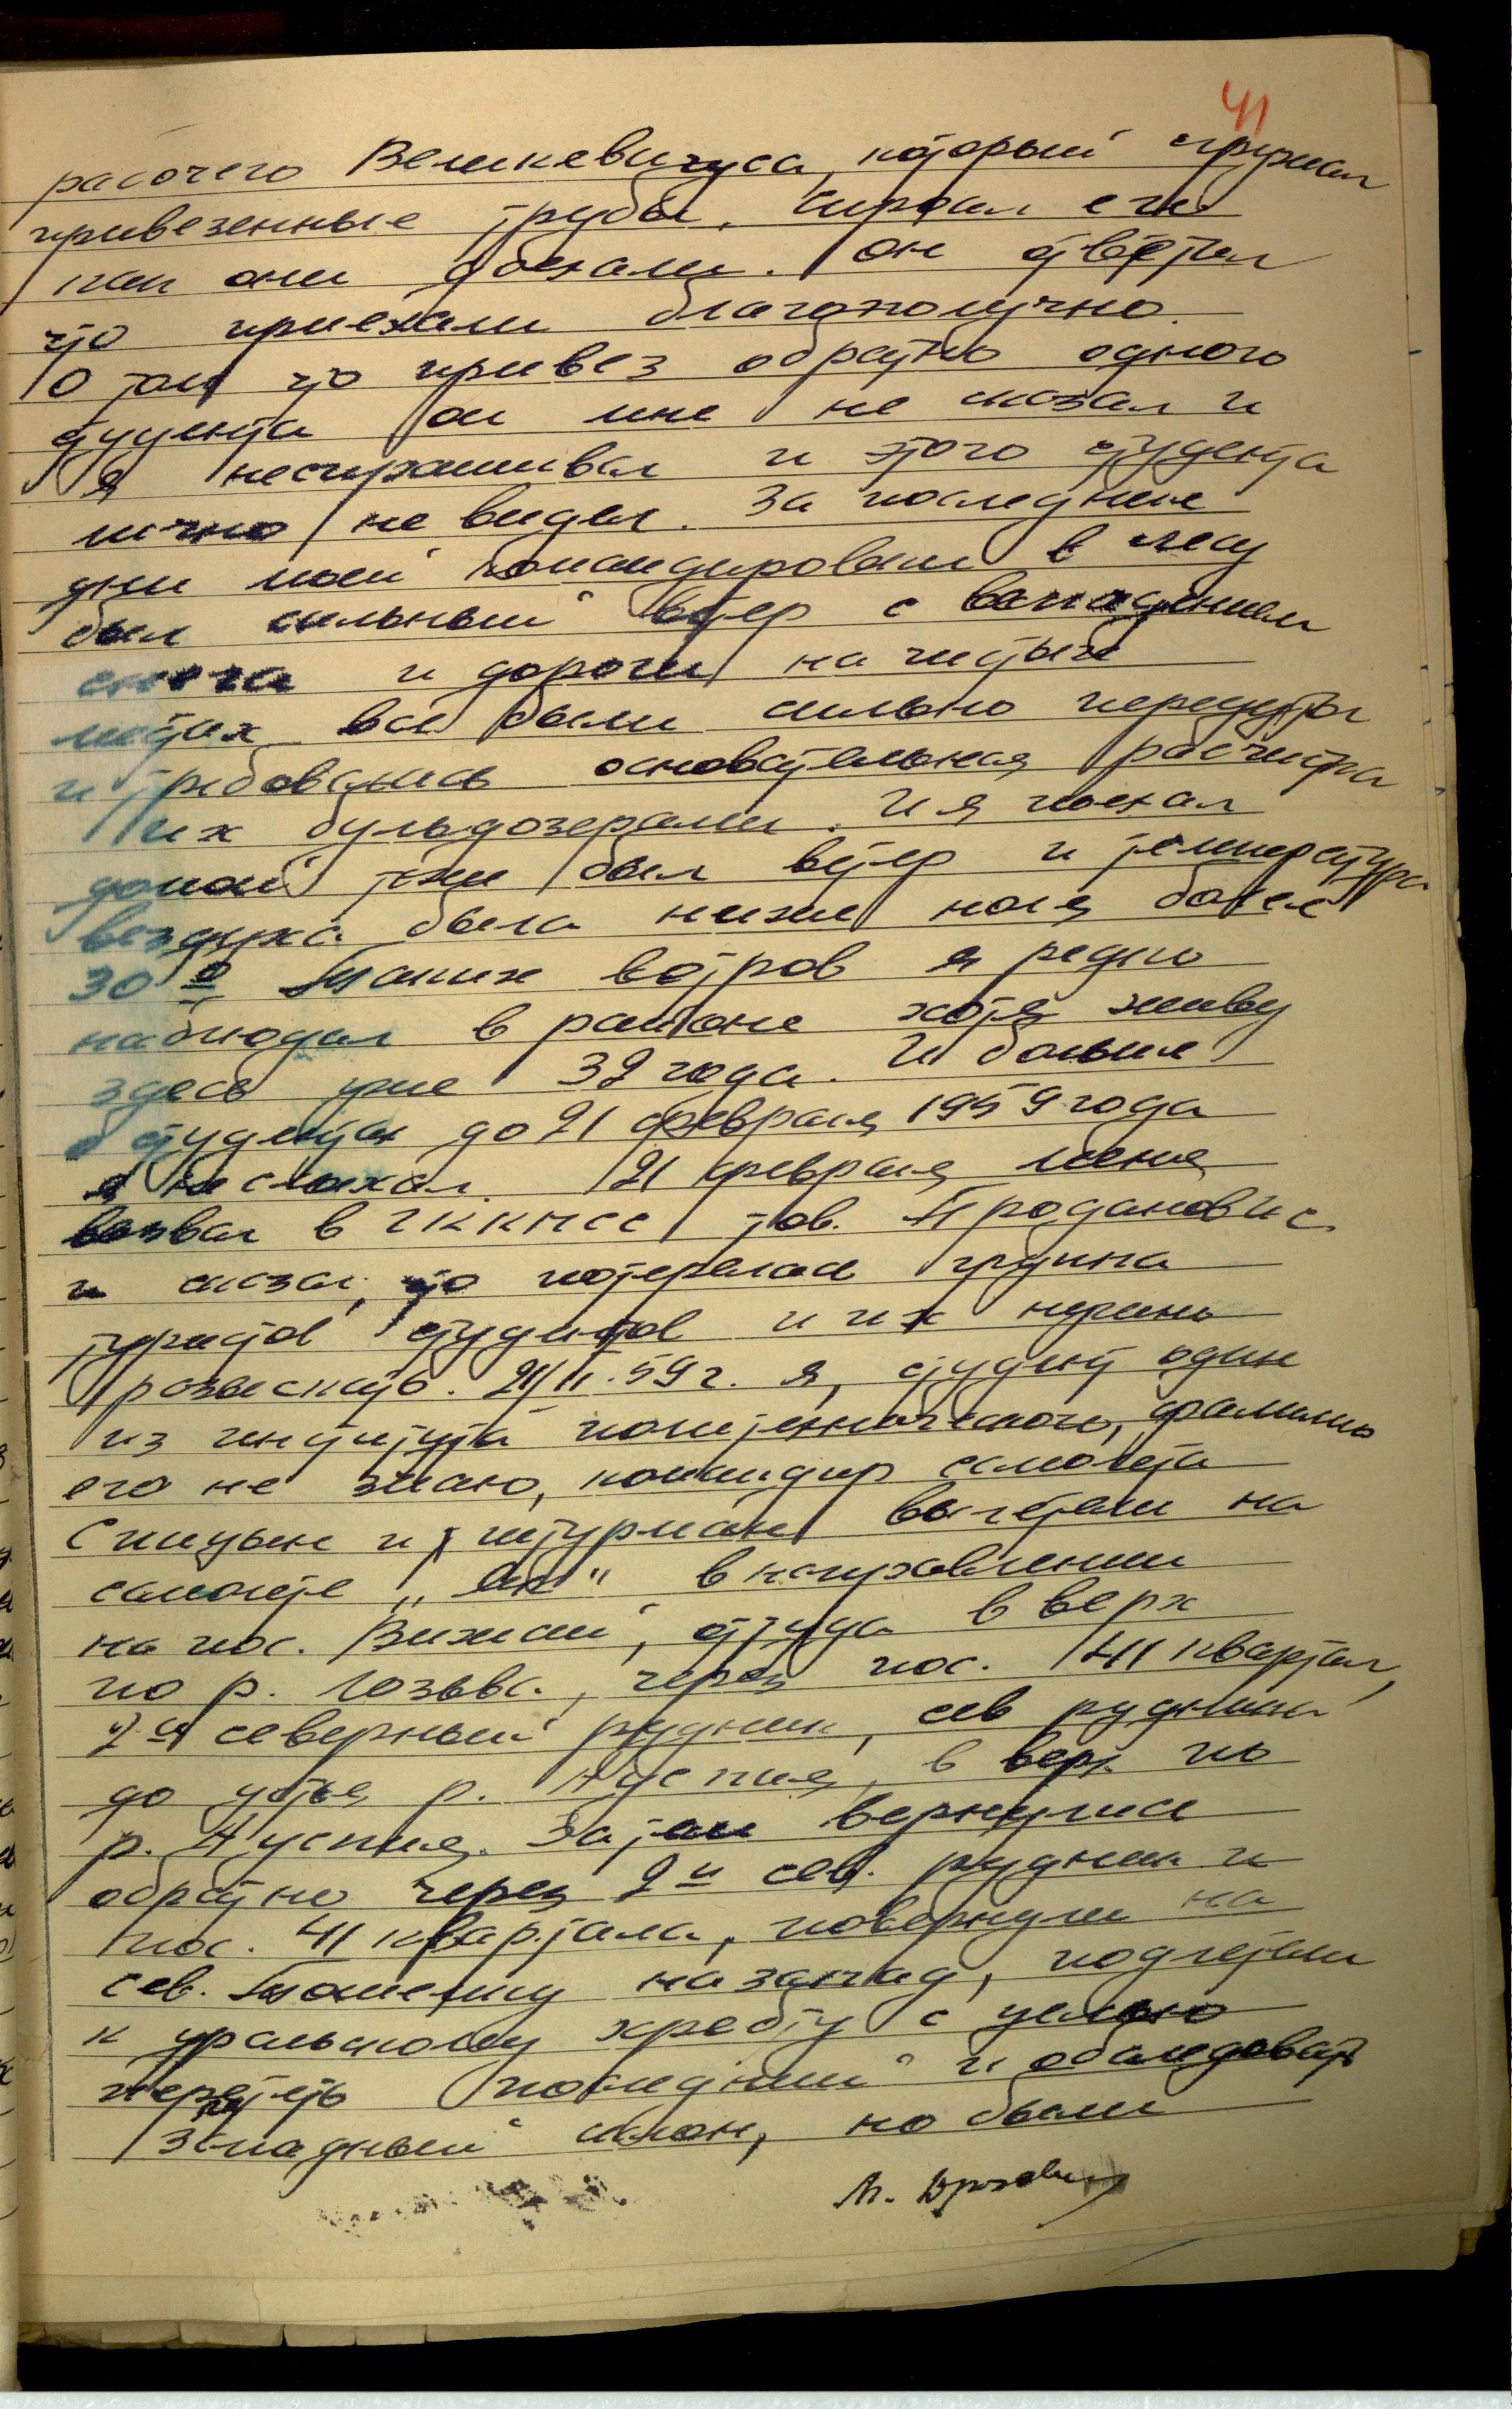 41
рабочего Великевичуса, который сгружал
привезенные трубы. Спросил его
как они доехали. Он ответил
что приехали благополучно.
О том что привез обратно одного
студента он мне не сказал и
я неспрашивал и этого студента
лично не видел. За последние
дни моей командировки в лесу
был сильный ветер с
снега и дороги на чистых
местах все были сильно передуты
и требовались основательная расчистка
их бульдозерами. И я поехал
домой тоже был ветер и температура
воздуха была ниже ноля более
30°. Таких ветров я редко
наблюдал в районе хотя живу
здесь уже 32 года. И больше
о студентах до 21 февраля 1959 года
я не слыхал. 21 февраля меня
вызвал в ГККПСС тов. Проданов И.С.
и сказал, что потерялась группа
туристов студентов и их нужно
розвескать. 21/II.59г. я, студент один
из института политехнического, фамилию
его не знаю, командир самолета
Спицын и штурман вылетели на
самолете „Як" в направлении
на пос. Вижай, оттуда в верх
по р. Лозьва, через пос. 41 квартал,
2ой северный рудник, сев рудника
до устья р. Ауспия, в верх по
р. Ауспия. Затем вернулись
обратно через 2й сев. рудник и
пос. 41 квартала, повернули на
сев. Тошемку на запад, подлетели
к уральскому хребту с целью
перелететь последний и обследовать
западный склон, но были